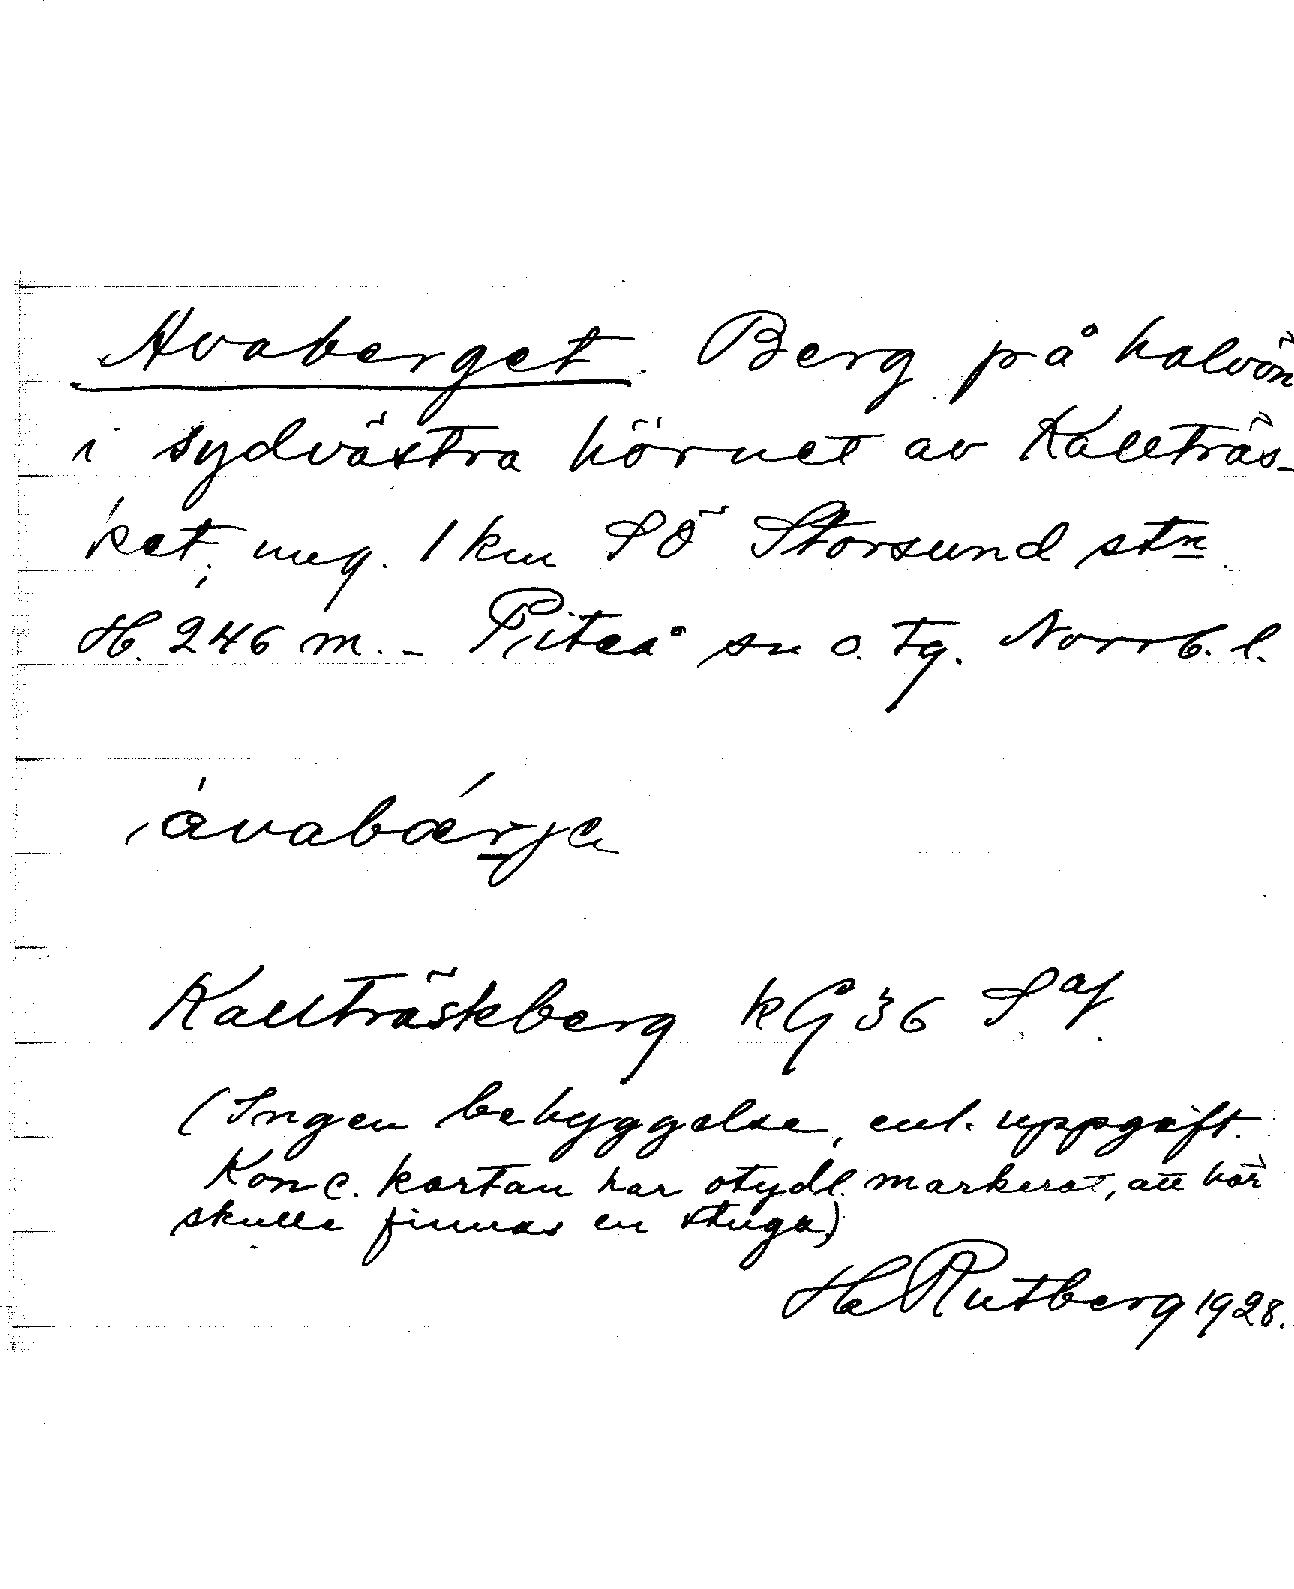 Avaberget. Berg på halvön
i sydvästra hörnet av Kallträs-
ket, ung. 1 km SÖ Storsund stn.
H. 246 m. - Piteå sn o. tg. Norrb. l.
Kallträskberg kG 36 Saf.
(Ingen bebyggelse, enl. uppgift.
Konc. kartan har otydl. markerat, att här
skulle finnas en stuga)
Hg Rutberg 1928.